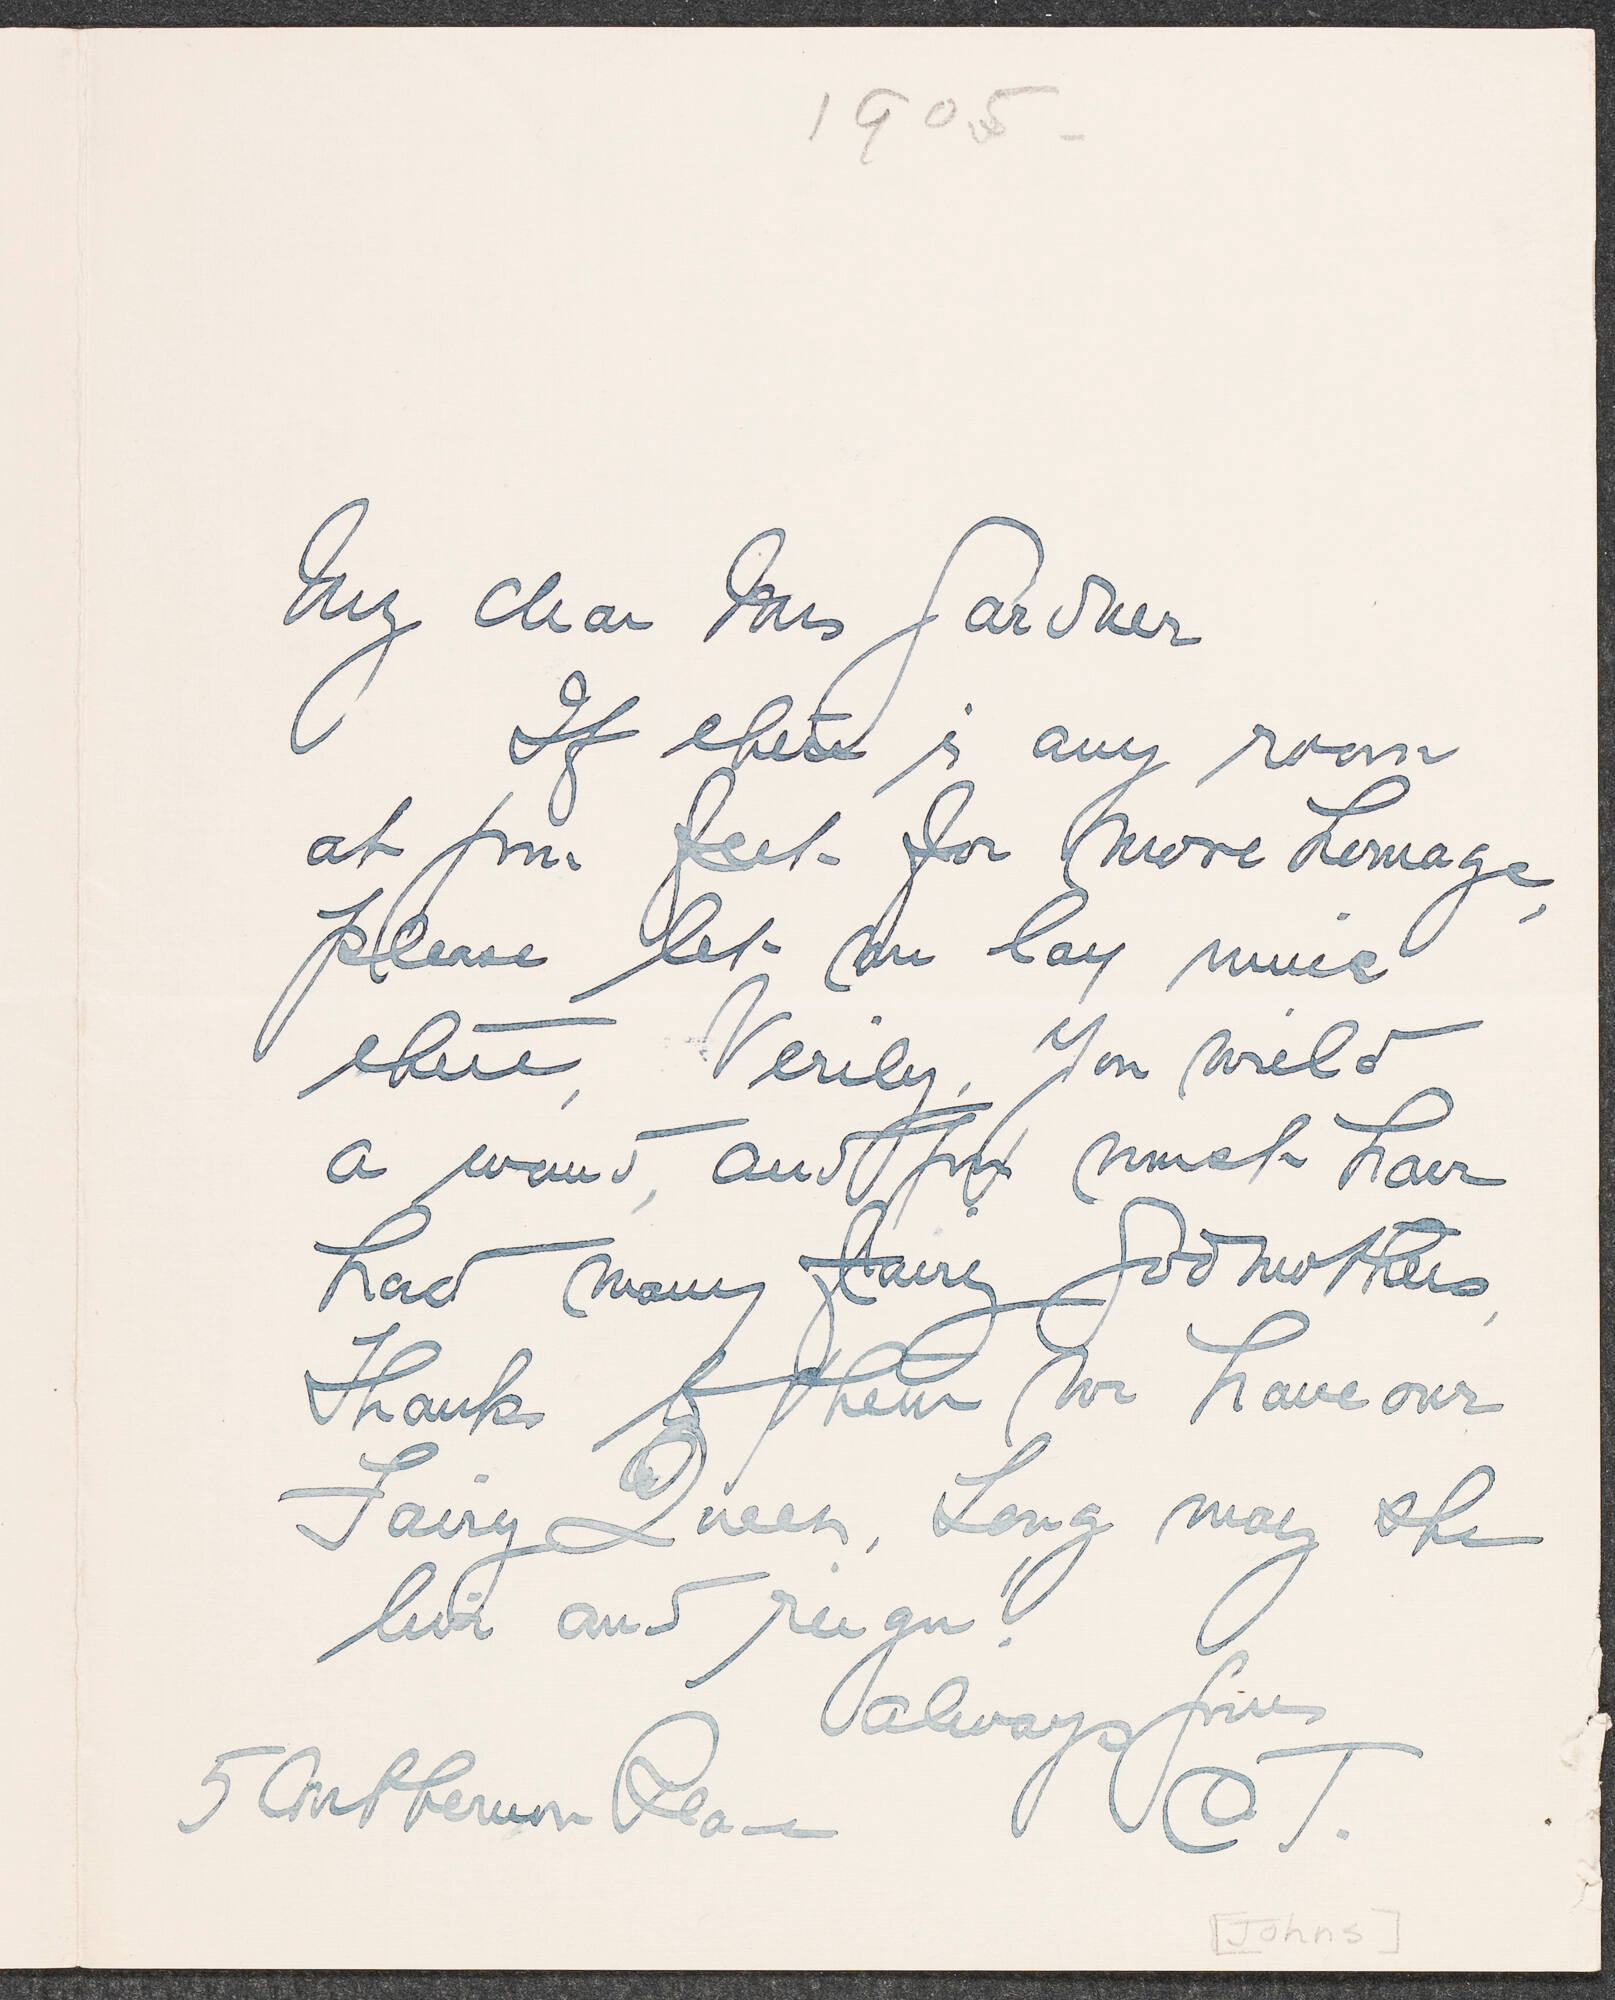 1905-
My dear Mrs Gardner
If there is any room
at your feet for more homage,
please let me lay mine
there, Verily, you wield
a wand, and you must have
had many fairy godmothers,
Thanks to them we have our
Fairy Queen, Long may she
live and reign!
always yours
C T.
5 Place
[Johns]